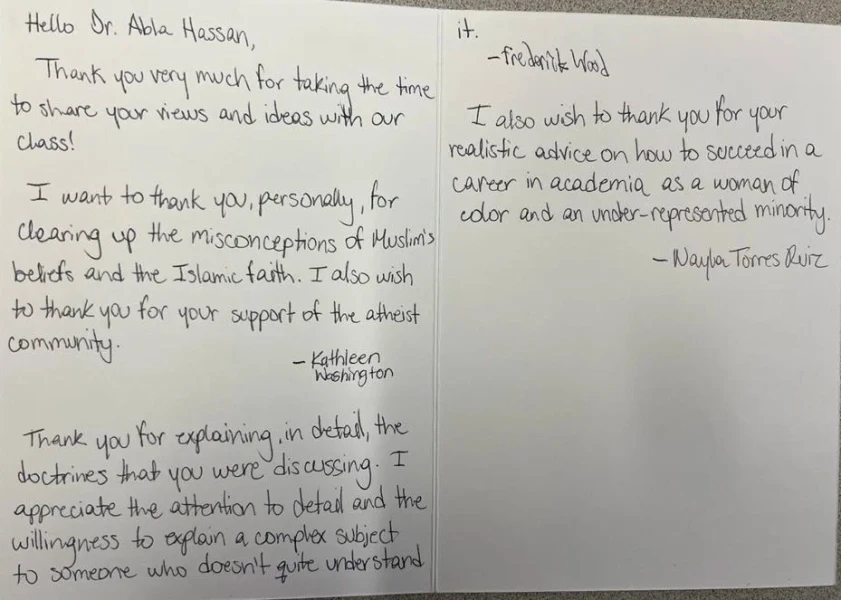 Hello Dr. Abla Hassan,
Thank you very much for taking the time
to share your views and ideas with our
class!
I want to thank you, personally, for
clearing up the misconceptions of Muslim's
beliefs and the Islamic faith. I also wish
to thank you for your support of the atheist
community.
– Kathleen
Washington
Thank you for explaining, in detail, the
doctrines that you were discussing. I
appreciate the attention to detail and the
willingness to explain a complex subject
to someone who doesn't quite understand
it.
– Frederick Wood
I also wish to thank you for your
realistic advice on how to succeed in a
career in academia as a woman of
color and an under-represented minority.
– Nayba Torres Ruiz